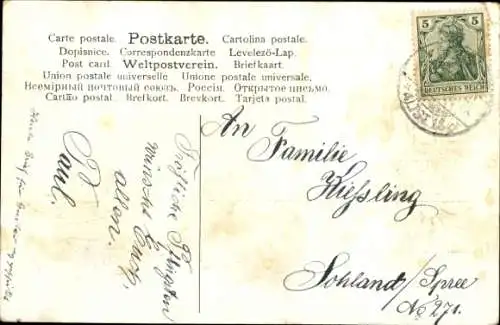 Carte postale. Postkarte. Cartolina postale.
Dopisnice. Correspondenzkarte Levelező-Lap.
Post card. Weltpostverein. Briefkaart.
Union postale universelle Unione postale universale.
Всемірный почтовый союзъ. Россія. Открытое письмо.
Cartão postal. Brefkort. Brevkort. Tarjeta postal.
5 5
DEUTSCHES REICH
An Familie
Kießling
Sohland/Spree
No 271.
Fröhliche Pfingsten
wünscht Euch
allen.
Paul.